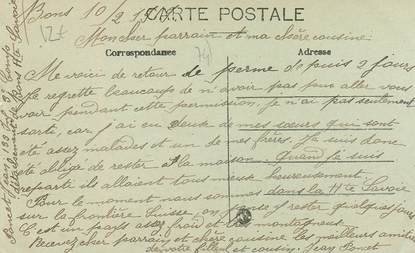 Bons 10/2 19
CARTE POSTALE
Mon cher parrain et ma chère cousine
Correspondance
Adresse
Me voici de retour de perme de puis 2 jours
Je regrette beaucoup de n'avoir pas pour aller vous
voir pendant cette permission, je n'ai pas seulement
sorti, car j'ai eu deux de mes sœurs qui sont
été assez malades et un de mes frères. Je suis donc
été obligé de rester a la maison. Quand je suis
reparti ils allaient tous mieux heureusement.
Pour le moment nous sommes dans la Hte Savoie
sur la frontière Suisse, on pense y rester quelques jours
C'est un pays assez froid et très montagneux
Recevez cher parrain et chère cousine les meilleurs amitiés
de votre filleul et cousin. Jean Ponet